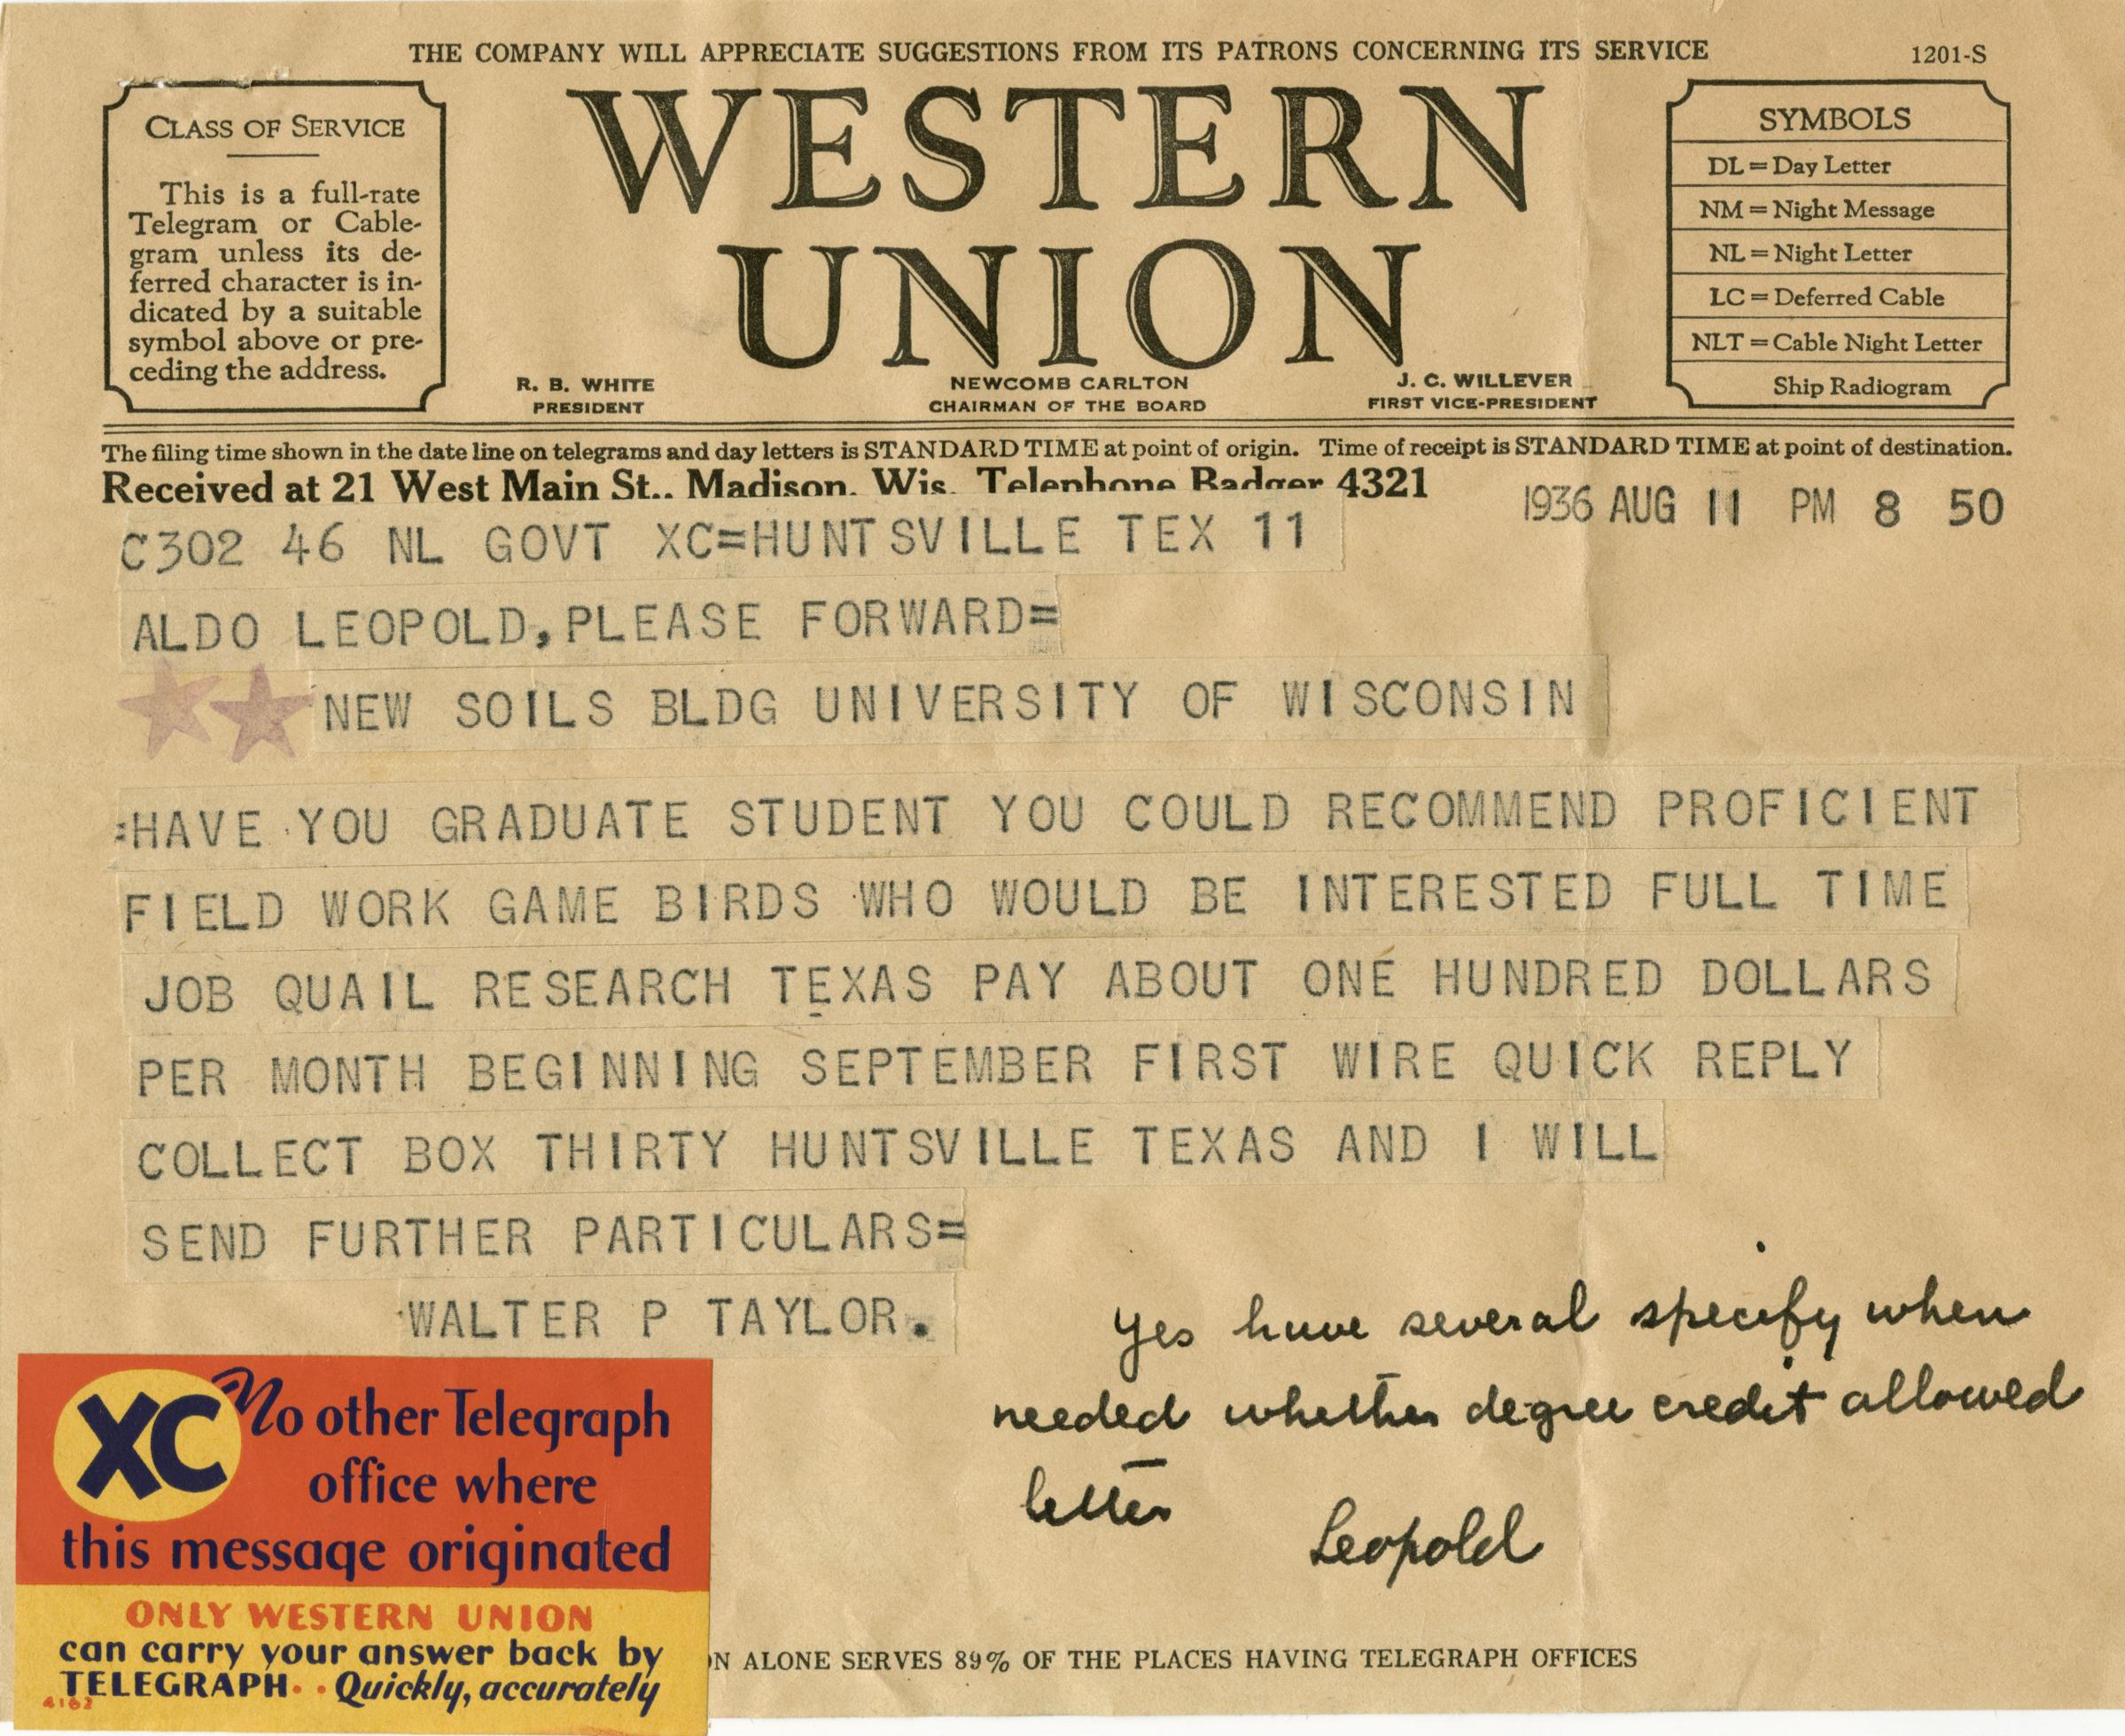 THE COMPANY WILL APPRECIATE SUGGESTIONS FROM ITS PATRONS CONCERNING ITS SERVICE
1201-S
CLASS OF SERVICE
This is a full-rate
Telegram or Cable-
gram unless its de-
ferred character is in-
dicated by a suitable
symbol above or pre-
ceding the address.
WESTERN
UNION
R. B. WHITE
PRESIDENT
NEWCOMB CARLTON
CHAIRMAN OF THE BOARD
J. C. WILLEVER
FIRST VICE-PRESIDENT
SYMBOLS
DL = Day Letter
NM = Night Message
NL = Night Letter
LC = Deferred Cable
NLT = Cable Night Letter
Ship Radiogram
The filing time shown in the date line on telegrams and day letters is STANDARD TIME at point of origin. Time of receipt is STANDARD TIME at point of destination.
Received at 21 West Main St., Madison, Wis. Telephone Badger 4321
1936 AUG 11 PM 8 50
C302 46 NL GOVT XC=HUNTSVILLE TEX 11
ALDO LEOPOLD, PLEASE FORWARD=
NEW SOILS BLDG UNIVERSITY OF WISCONSIN
:HAVE YOU GRADUATE STUDENT YOU COULD RECOMMEND PROFICIENT
FIELD WORK GAME BIRDS WHO WOULD BE INTERESTED FULL TIME
JOB QUAIL RESEARCH TEXAS PAY ABOUT ONE HUNDRED DOLLARS
PER MONTH BEGINNING SEPTEMBER FIRST WIRE QUICK REPLY
COLLECT BOX THIRTY HUNTSVILLE TEXAS AND I WILL
SEND FURTHER PARTICULARS=
WALTER P TAYLOR.
Yes have several specify when
needed whether degree credit allowed
letter
Leopold
XC No other Telegraph
office where
this message originated
ONLY WESTERN UNION
can carry your answer back by
TELEGRAPH · · Quickly, accurately
4162
N ALONE SERVES 89% OF THE PLACES HAVING TELEGRAPH OFFICES